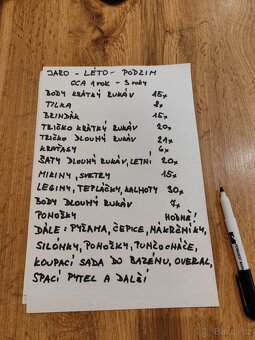 JARO - LÉTO - PODZIM
CCA 1 ROK - 3 ROKY
BODY KRÁTKÝ RUKÁV 15x
TÍLKA 8x
BRINDÁK 15x
TRIČKO KRÁTKÝ RUKÁV 20x
TRIČKO DLOUHÝ RUKÁV 21x
KRAŤASY 6x
ŠATY DLOUHÝ RUKÁV, LETNÍ 20x
MIKINY, SVETRY 15x
LEGINY, TEPLÁČKY, KALHOTY 30x
BODY DLOUHÝ RUKÁV 7x
PONOŽKY HODNĚ!
DÁLE: PYŽAMA, ČEPICE, NÁKRČNÍKY,
SILONKY, PONOŽKY, PUNČOCHÁČE,
KOUPACÍ SADA DO BAZÉNU, OVERAL,
SPACÍ PYTEL A DALŠÍ